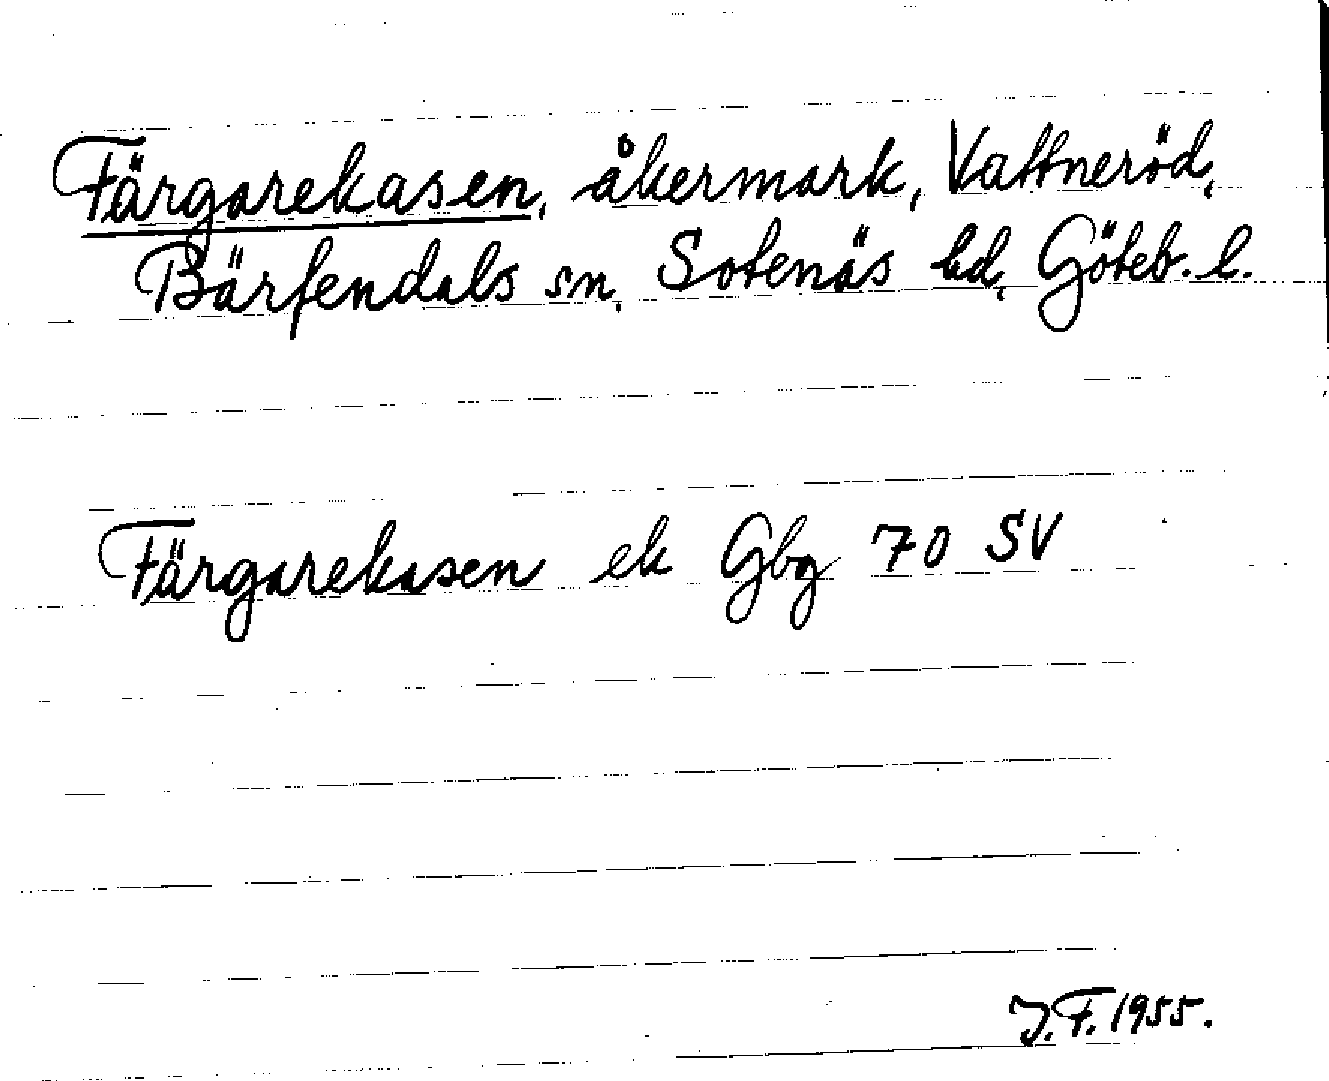 Färgarekasen, åkermark, Vattneröd,
Bärfendals sn, Sotenäs hd, Göteb. l.
Färgarekasen ek Gbg 70 SV
J.F. 1955.